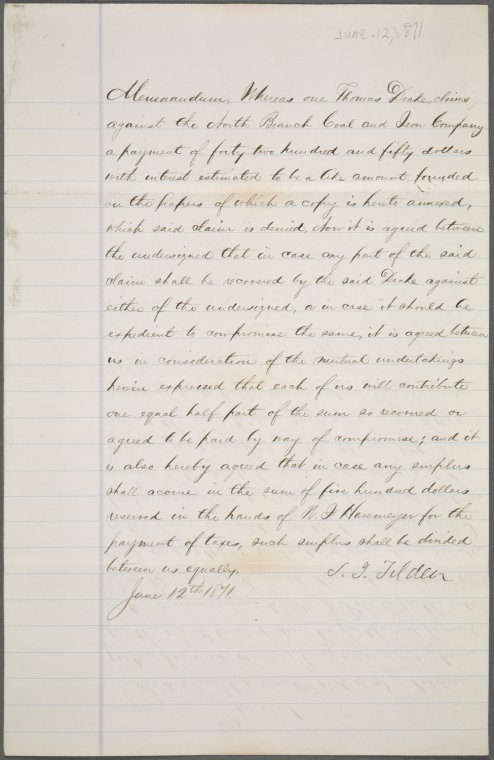 JUNE-12, 1871
Memorandum, Whereas one Thomas Drake, claims
against the North Branch Coal and Iron Company
a payment of forty-two hundred and fifty dollars
with interest estimated to be a like amount, founded
on the papers of which a copy is hereto annexed,
which said claim is denied, Now it is agreed between
the undersigned that in case any part of the said
claim shall be recovered by the said Drake against
either of the undersigned, or in case it should be
expedient to compromise the same, it is agreed between
us in consideration of the mutual undertakings
herein expressed that each of us will contribute
one equal half part of the sum so recovered or
agreed to be paid by way of compromise; and it
is also hereby agreed that in case any surplus
shall accrue in the sum of five hundred dollars
reserved in the hands of W F Havemeyer for the
payment of taxes, such surplus shall be divided
between us equally.
S. J. Tilden
June 12th 1871